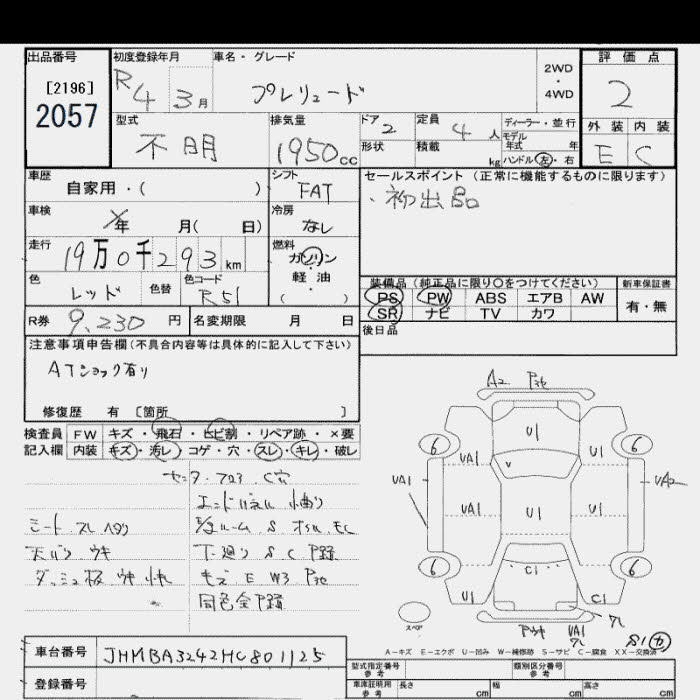 出品番号
[2196]
2057
初度登録年月
R4 3月
車名・グレード
プレリュード
2WD
・
4WD
評価点
2
型式
不明
排気量
1950cc
ドア
2
定員
4人
形状
積載
kg
ディーラー・並行
モデル
年式 年
ハンドル 左・右
外装 内装
E C
車歴
自家用・( )
シフト
FAT
セールスポイント(正常に機能するものに限ります)
・初出品
車検
年 月( 日)
冷房
なし
走行
19万0千293km
燃料
ガソリン
・
軽油
( )
色
レッド
色替
色コード
R51
装備品(純正品に限り〇をつけてください)
新車保証書
PS PW ABS エアB AW
SR ナビ TV カワ
有・無
R券 9,230円
名変期限 月 日
後日品
注意事項申告欄(不具合内容等は具体的に記入して下さい)
ATショック有り
修復歴 有 〔箇所 〕
検査員 FW キズ・飛石・ヒビ割・リペア跡・×要
記入欄 内装 キズ・汚レ・コゲ・穴・スレ・キレ・破レ
センタ C穴
エンドパネル 曲り
シート スレ ヘタリ
ルーム S オイルモレ
天バリ ウキ
下廻り S C P跡
ダッシュ板 ウキ
キズ E W3 P他
同色全P跡
A2 P他
U1
6 6
UA1
V
UA1 UA2
UA1 U1 U1
6 6
C1
U1 C1
スペア
UA1
S1
A-キズ E-エクボ U-凹み W-補修跡 S-サビ C-腐食 XX-交換済
車台番号
JHMBA3242HC801125
登録番号
型式指定番号
参考
類別区分番号
参考
車庫証明用
参考
長さ cm 幅 cm 高さ cm